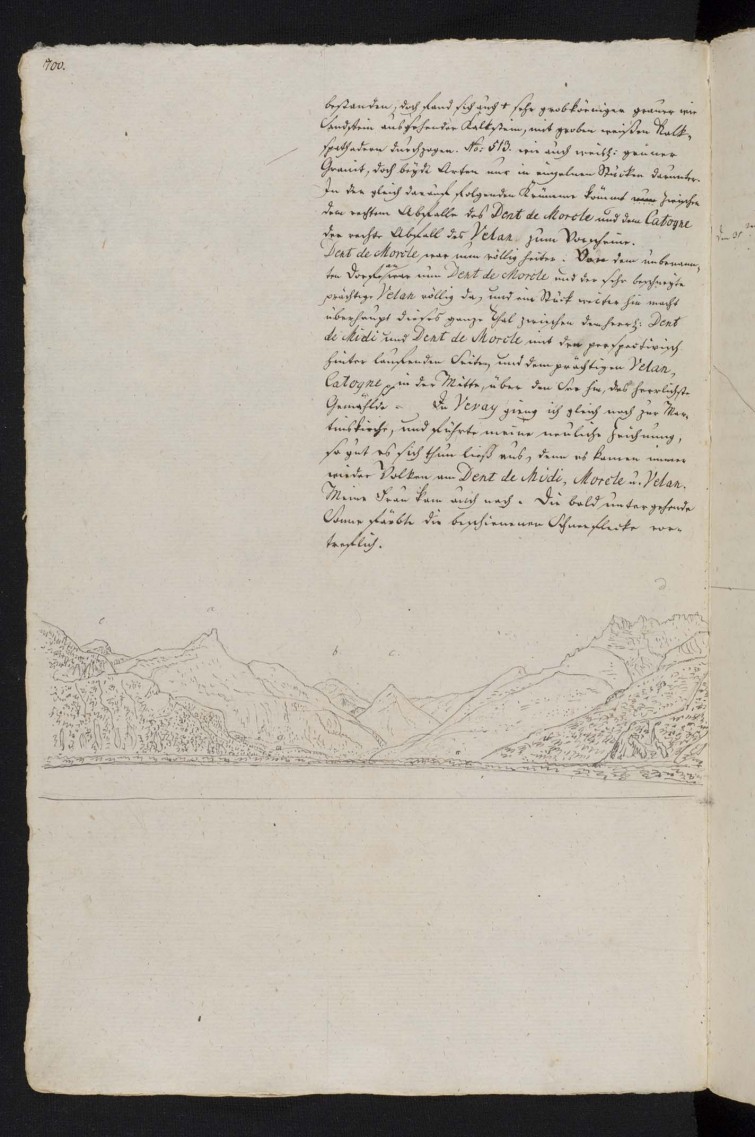 700.
bestanden, doch fand sich auch + sehr grobkörniger grauer wie
Sandstein aussehender Kalkstein, mit groben weißen Kalk-
spathadern durchzogen. No: 513. wie auch grüner
Granit, doch beyde Arten nur in einzelnen Stücken darunter.
In der gleich darauf folgenden Krümme kömmt zwischen
dem rechten Abfalle des Dent de Morcle und dem Catogne
der rechte Abfall des Velan zum Vorscheine.
Dent de Morcle, war nun völlig heiter. Von dem unbenann-
ten Dorfe an war nun Dent de Morcle und der sehr beschneyte
prächtige Velan völlig da, und ein Stück weiter hin macht
überhaupt dieses ganze Thal zwischen dem herrl: Dent
de Midi und Dent de Morcle mit den perspectivisch
hinter laufenden Seiten, und dem prächtigen Velan,
Catogne, in der Mitte, über den See hin, das herrlichste
Gemählde. Zu Vevay gieng ich gleich noch zur Mar-
tinskirche, und führte meine neuliche Zeichnung,
so gut es sich thun ließ aus, denn es kamen immer
wieder Wolken am Dent de Midi, Morcle u. Velan.
Meine Frau kam auch nach. Die bald untergehende
Sonne färbte die beschienenen Schneeflecke vor-
treflich.
a
b
c